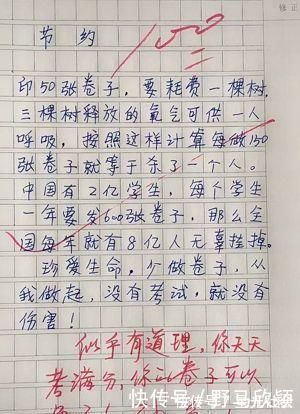 修正
节约
100
印50张卷子，要耗费一棵树，
三棵树释放的氧气可供一人
呼吸，按照这样计算每做150
张卷子就等于杀了一个人。
中国有2亿学生，每个学生
一年要发600张卷子，那么全
国每年就有8亿人无辜挂掉。
珍爱生命，少做卷子，从
我做起，没有考试，就没有
伤害！
似乎有道理，你天天
考满分，你的卷子可以
快传号/野马欣颖